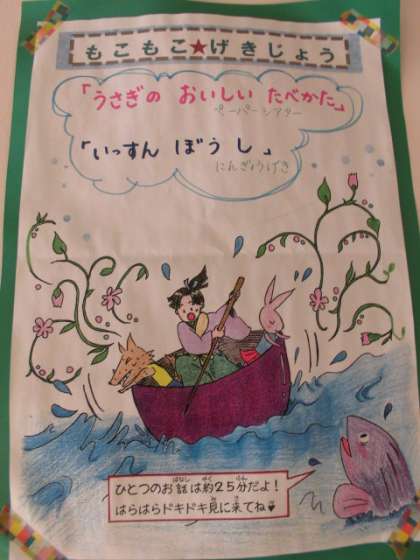 もこもこ★げきじょう
「うさぎの おいしい たべかた」
ペーパーシアター
「いっすん ぼうし」
にんぎょうげき
ひとつのお話(はなし)は約(やく)25分(ふん)だよ!
はらはらドキドキ見(み)に来(き)てね♥